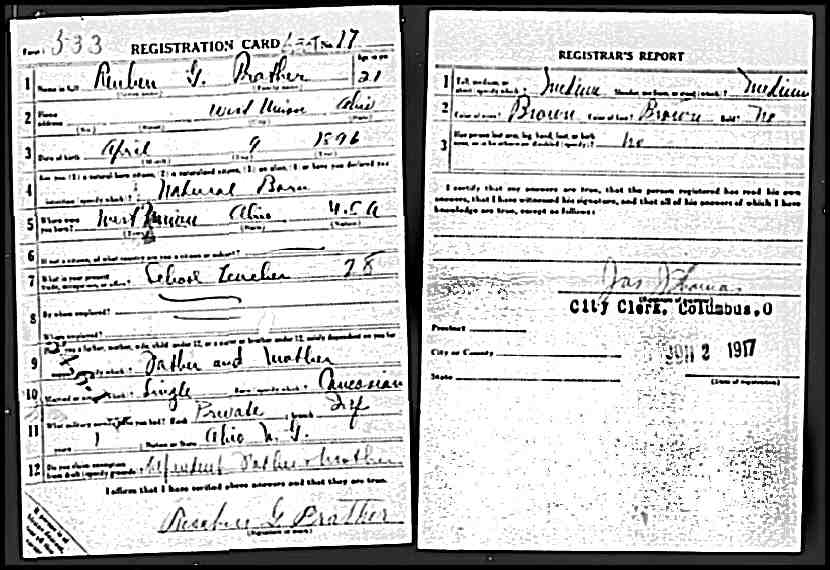 Form 1 533 REGISTRATION CARD No. 17
1 Name in full Reuben G. Brather Age in yrs. 21
(Given name) (Family name)
2 Home address West Union Ohio
(No.) (Street) (City) (State)
3 Date of birth April 9 1896
(Month) (Day) (Year)
Are you (1) a natural born citizen, (2) a naturalized citizen, (3) an alien, (4) or have you declared your
4 intention (specify which)? Natural Born
5 Where were you born? West Union Ohio U.S.A
(Town) (State) (Nation)
6 If not a citizen, of what country are you a citizen or subject?
7 What is your present trade, occupation, or office? School Teacher 28
8 By whom employed?
Where employed?
9 Have you a father, mother, wife, child under 12, or a sister or brother under 12, solely dependent on you for
support (specify which)? Father and Mother
10 Married or single (which)? Single Race (specify which)? Caucasian
11 What military service have you had? Rank Private ; branch Inf
years 1 ; Nation or State Ohio N. G.
12 Do you claim exemption from draft (specify grounds)? dependent Father & Mother
I affirm that I have verified above answers and that they are true.
Reuben G Brather
(Signature or mark)
REGISTRAR'S REPORT
1 Tall, medium, or short (specify which)? Medium Slender, medium, or stout (which)? Medium
2 Color of eyes? Brown Color of hair? Brown Bald? No
3 Has person lost arm, leg, hand, foot, or both eyes, or is he otherwise disabled (specify)? No
I certify that my answers are true, that the person registered has read his own
answers, that I have witnessed his signature, and that all of his answers of which I have
knowledge are true, except as follows:
Jas J Thomas
(Signature of registrar)
City Clerk, Columbus, O
Precinct
City or County JUN 2 1917
State
(Date of registration)